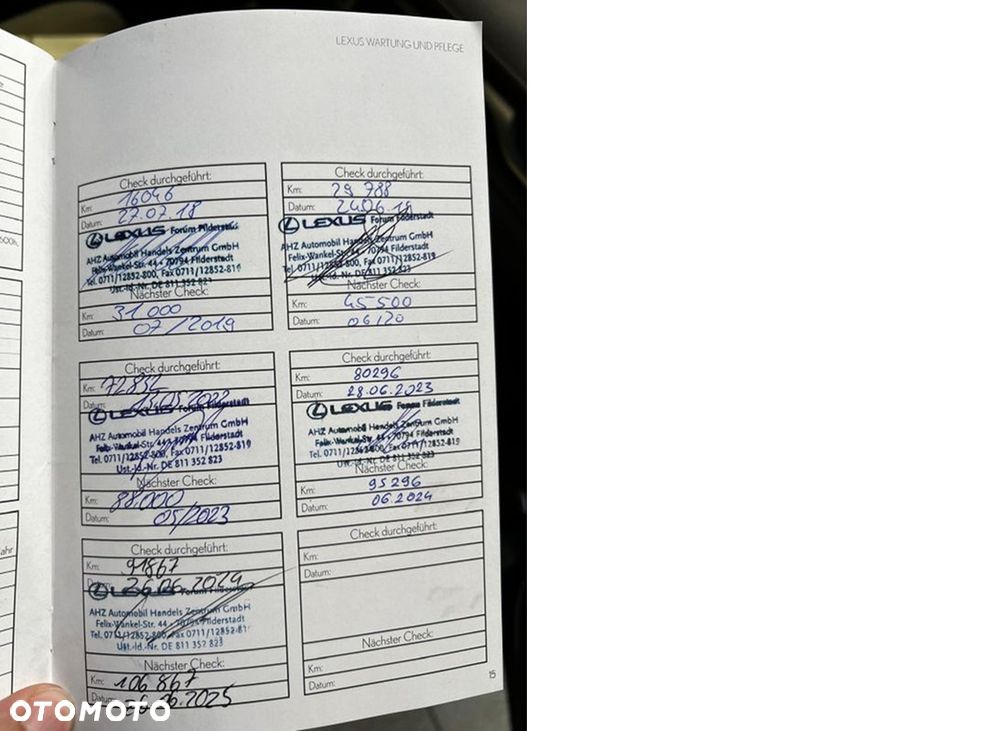 LEXUS WARTUNG UND PFLEGE
Check durchgeführt:
Km: 16046
Datum: 27.07.18
LEXUS Forum Filderstadt
AHZ Automobil Handels Zentrum GmbH
Felix-Wankel-Str. 44 • 70794 Filderstadt
Tel. 0711/12852-800, Fax 0711/12852-819
Ust.-Id.-Nr. DE 811 352 823
Nächster Check:
Km: 31000
Datum: 07/2019
Check durchgeführt:
Km: 29 788
Datum:
LEXUS Forum Filderstadt
AHZ Automobil Handels Zentrum GmbH
Felix-Wankel-Str. 44 • 70794 Filderstadt
Tel. 0711/12852-800, Fax 0711/12852-819
Ust.-Id.-Nr. DE 811 352 823
Nächster Check:
Km: 45500
Datum: 06/20
Check durchgeführt:
Km: 72832
Datum:
LEXUS Forum Filderstadt
AHZ Automobil Handels Zentrum GmbH
Felix-Wankel-Str. 44 • 70794 Filderstadt
Tel. 0711/12852-800, Fax 0711/12852-819
Ust.-Id.-Nr. DE 811 352 823
Nächster Check:
Km: 88.000
Datum: 05/2023
Check durchgeführt:
Km: 80296
Datum: 28.06.2023
LEXUS Forum Filderstadt
AHZ Automobil Handels Zentrum GmbH
Felix-Wankel-Str. 44 • 70794 Filderstadt
Tel. 0711/12852-800, Fax 0711/12852-819
Ust.-Id.-Nr. DE 811 352 823
Nächster Check:
Km: 95296
Datum: 06.2024
Check durchgeführt:
Km: 91867
Datum: 26.06.2024
LEXUS Forum Filderstadt
AHZ Automobil Handels Zentrum GmbH
Felix-Wankel-Str. 44 • 70794 Filderstadt
Tel. 0711/12852-800, Fax 0711/12852-819
Ust.-Id.-Nr. DE 811 352 823
Nächster Check:
Km: 106 867
Datum: 26.06.2025
Check durchgeführt:
Km:
Datum:
Nächster Check:
Km:
Datum:
15
OTOMOTO